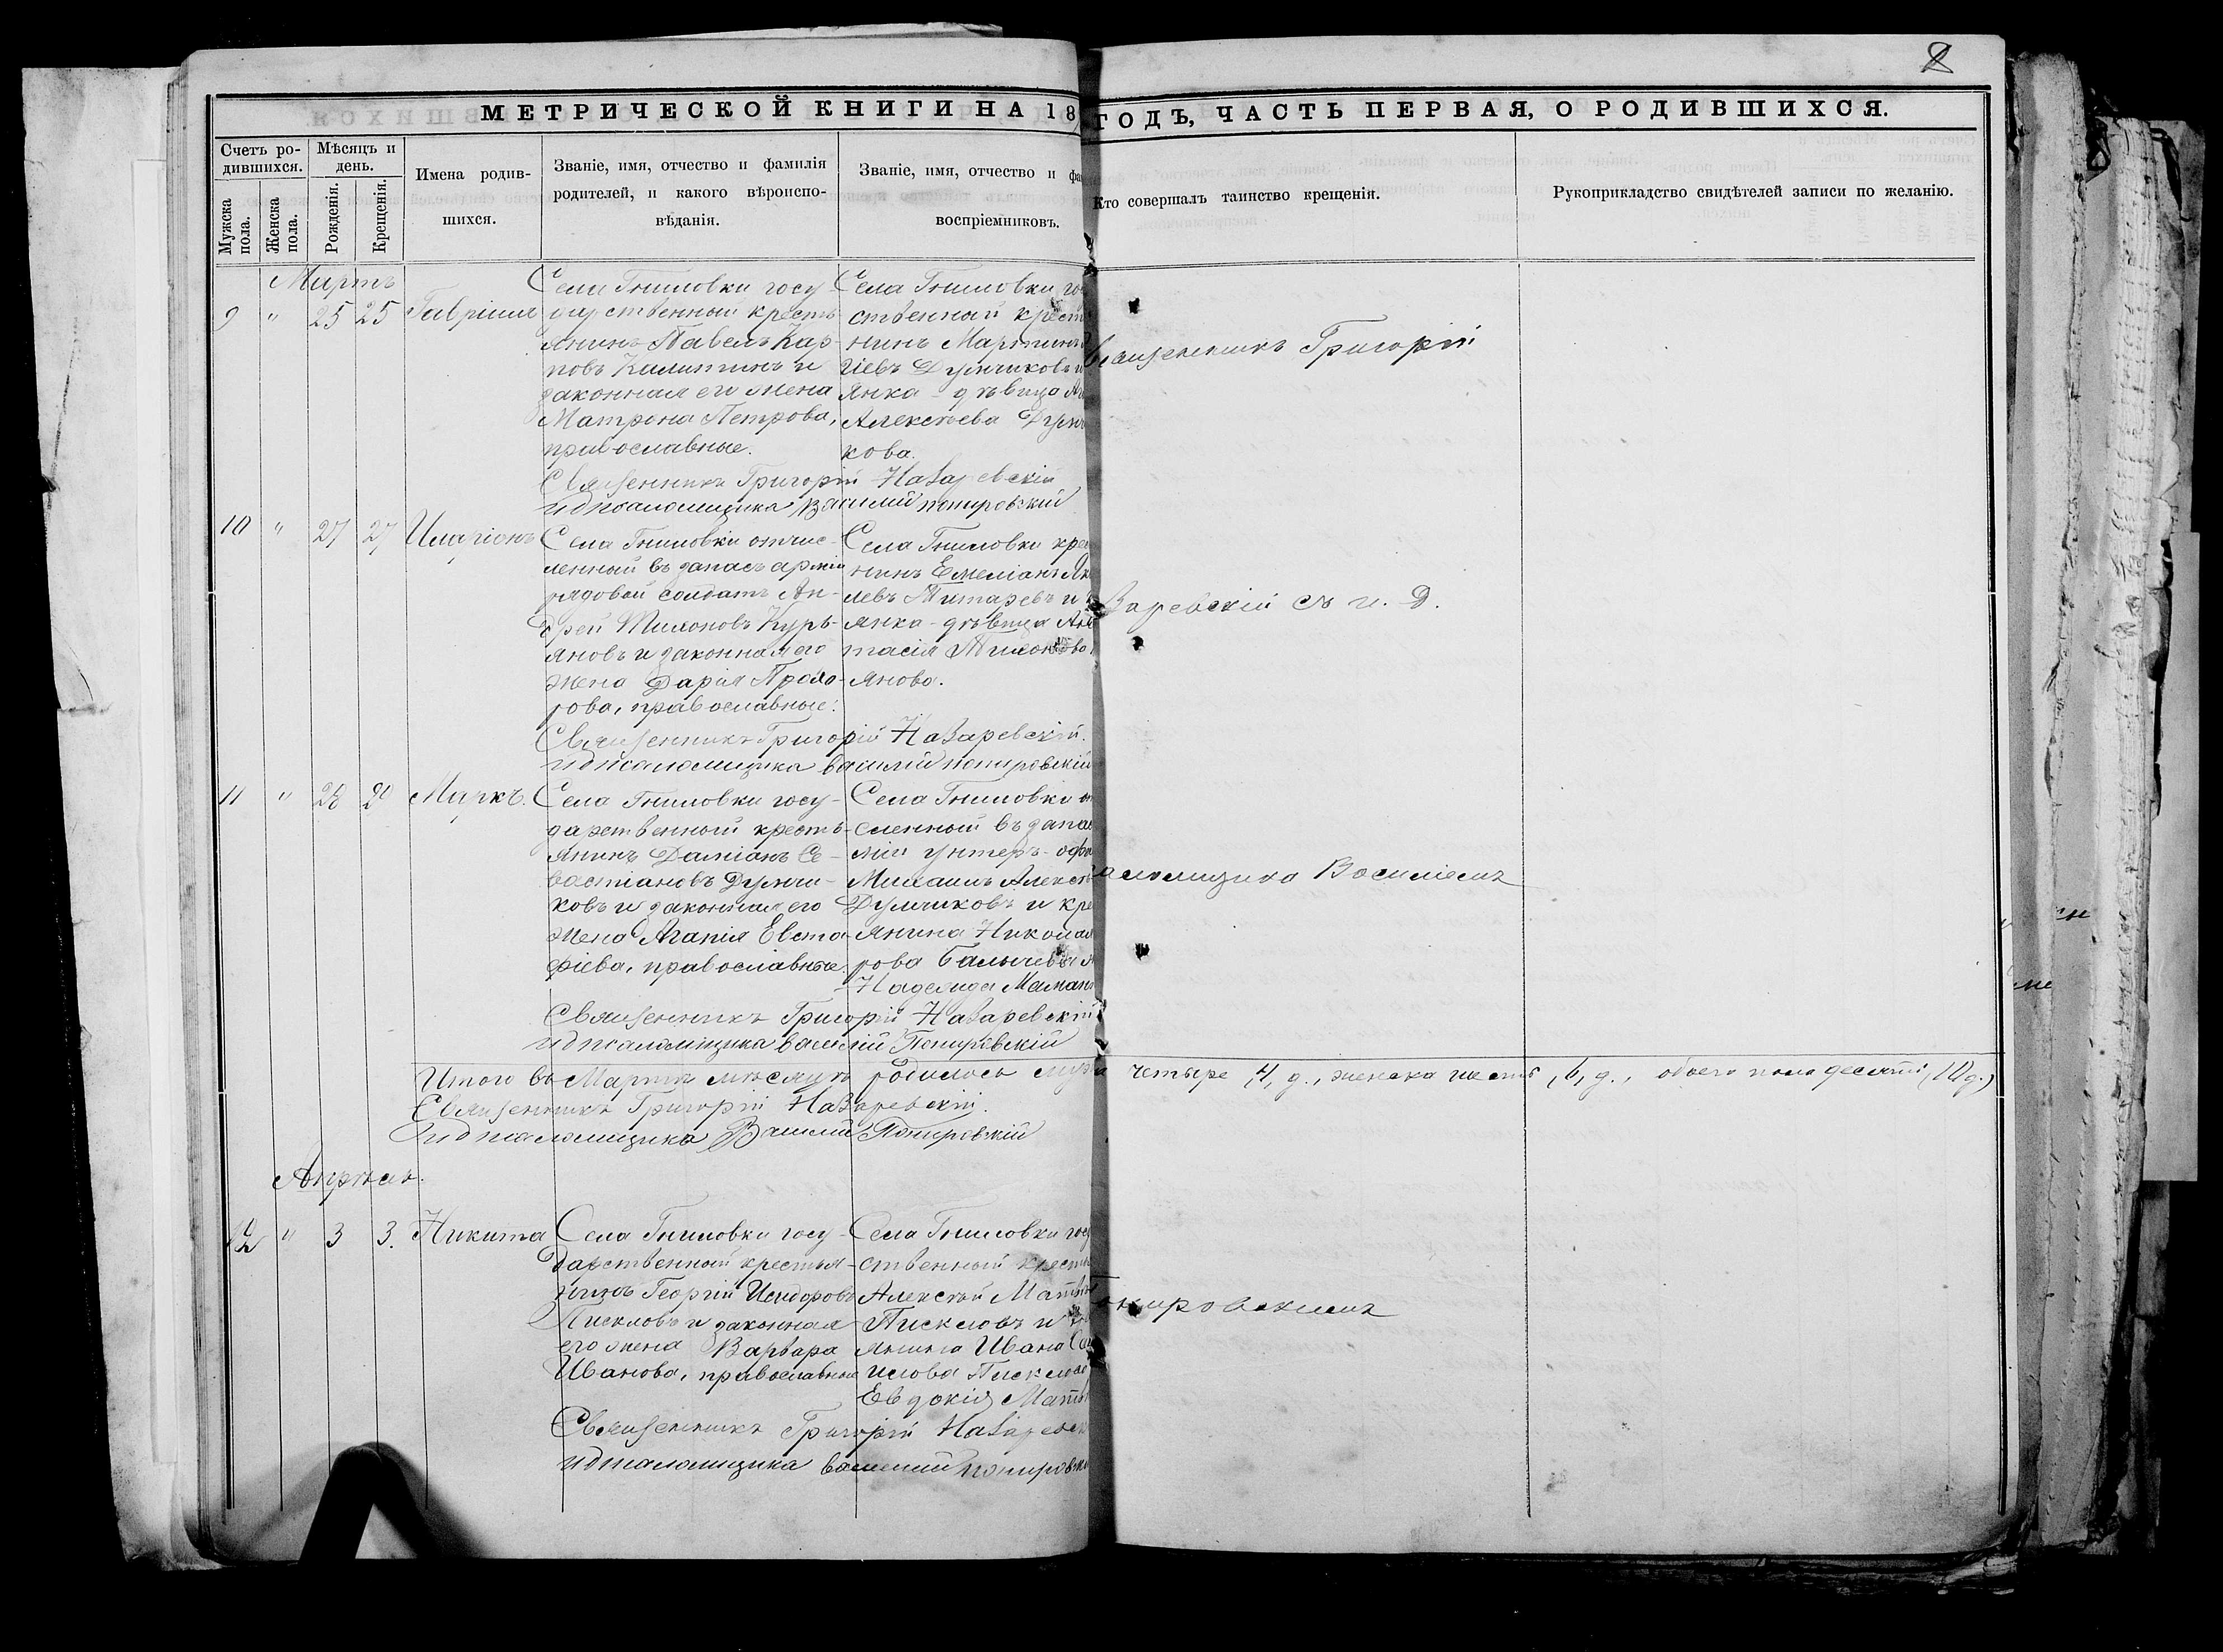 2
МЕТРИЧЕСКОЙ КНИГИ НА 18
ГОДЪ, ЧАСТЬ ПЕРВАЯ, О РОДИВШИХСЯ.
Счетъ ро-
дившихся.
Мужска
пола.
Женска
пола.
Мѣсяцъ и
день.
Рожденія.
Крещенія.
Имена родив-
шихся.
Званіе, имя, отчество и фамилія
родителей, и какого вѣроиспо-
вѣданія.
Званіе, имя, отчество и фа
воспріемниковъ.
Кто совершалъ таинство крещенія.
Рукоприкладство свидѣтелей записи по желанію.
Мартъ
9 " 25 25 Гавріилъ
Села Гниловки госу-
дарственный кресть-
янинъ Павелъ Кар-
повъ Калитинъ и
законная его жена
Матрона Петрова,
православные.
Села Гниловки го
ственный кресть
нинъ Мартинъ
гіевъ Думчиковъ и
янка - дѣвица
Алексѣева Думч
кова.
Священникъ Григорій Назаревскій
и д псаломщика Василій Попировскій
10 " 27 27 Иларіонъ
Села Гниловки отчис-
ленный въ запасъ арміи
рядовой солдатъ Ан-
дрей Тихоновъ Курь-
яновъ и законная его
жена Дарія Прохо-
рова, православные.
Села Гниловки кре
нинъ Емеліанъ Як
левъ Титаревъ и
янка - дѣвица Ана
тасія Тихонова
янова.
Священникъ Григорій Назаревскій.
и д псаломщика Василій Попировскій
11 " 28 Маркъ.
Села Гниловки госу-
дарственный кресть-
янинъ Даміанъ Се-
вастіановъ Думчи-
ковъ и законная его
жена Агапія Евста-
фіева, православные.
Села Гниловки о
сленный въ запа
міи унтеръ-офи
Михаилъ Алексѣ
Думчиковъ и кре
янина Никола
рова Балычева
Надежда Маман
Священникъ Григорій Назаревскій
и д псаломщика Василій Попировскій
Итого въ Мартѣ мѣсяцѣ родилось муж четыре, 4, д., женска шесть, 6, д., обоего пола десять (10 д.)
Священникъ Григорій Назаревскій.
и д псаломщика Василій Попировскій
Апрѣль.
12 " 3 3. Никита
Села Гниловки госу-
дарственный крестья-
нинъ Георгій Исидоровъ
Пискловъ и законная
его жена Варвара
Иванова, православные
Села Гниловки госу
ственный кресть
Алексѣй Матв
Пискловъ и
янина Ивана
илова Писклова
Евдокія Матв
Священникъ Григорій Назаревск
и д псаломщика Василій Попировск
Священникъ Григорій
Заревскій съ и. д.
аломщика Василіемъ
опировскимъ